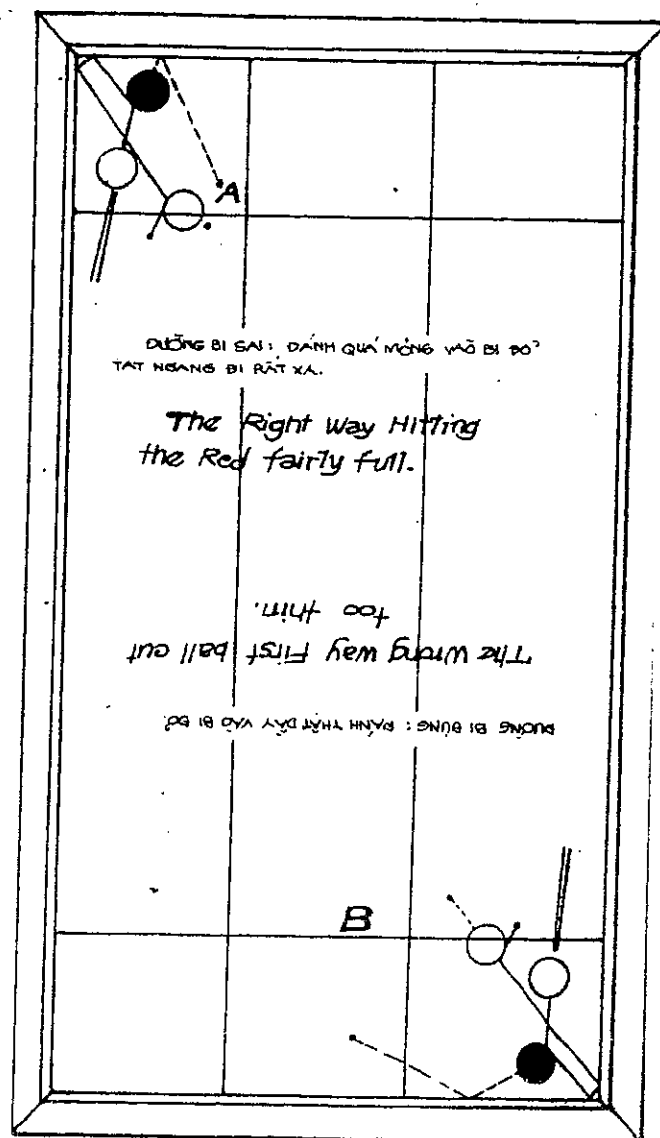 A
ĐƯỜNG BI SAI: DÁNH QUÁ MỎNG VÀO BI ĐỎ
TAT NGANG ĐI RẤT XA.
The Right Way Hitting
the Red fairly full.
The Wrong way First ball cut
too thin.
ĐƯỜNG BI ĐÚNG: ĐÁNH THẬT DẦY VÀO BI ĐỎ.
B